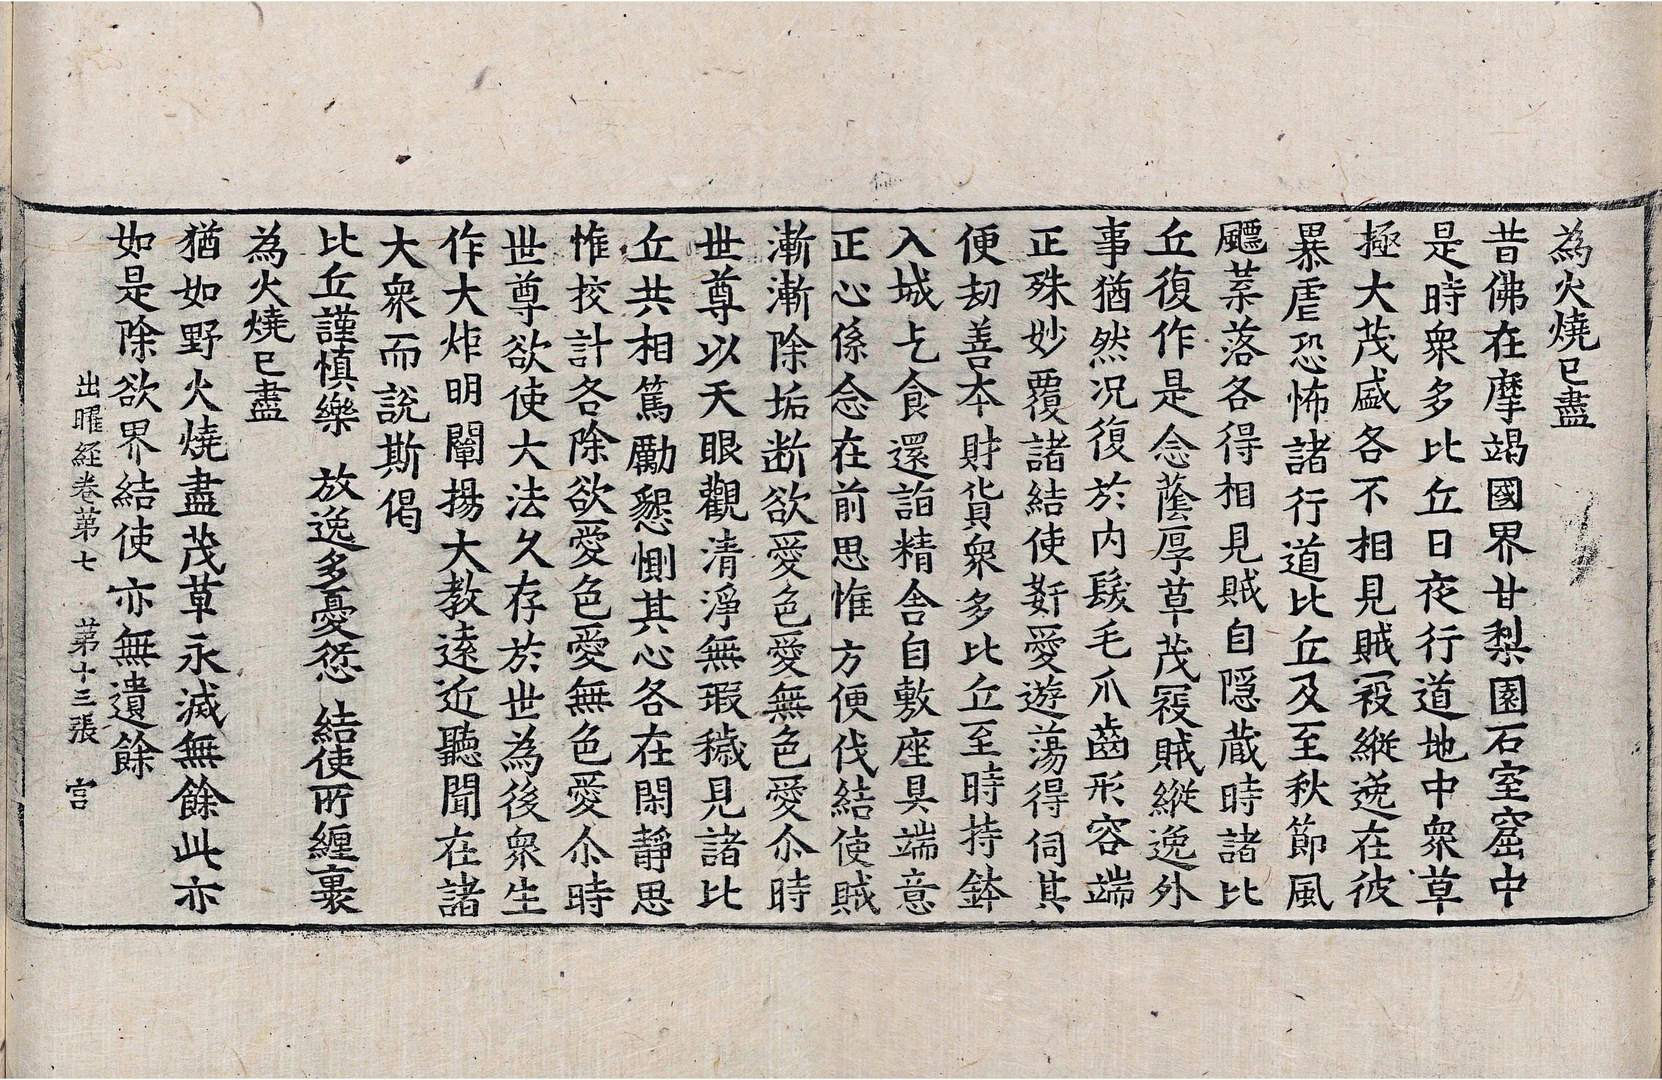 為火燒已盡
昔佛在摩竭國界甘梨園石室窟中
是時衆多比丘日夜行道地中衆草
極大茂盛各不相見賊寇縱逸在彼
暴虐恐怖諸行道比丘及至秋節風
飄葉落各得相見賊自隱蔵時諸比
丘復作是念蔭厚草茂寇賊縱逸外
事猶然况復於内髮毛爪齒形容端
正殊妙覆諸結使姧愛遊蕩得伺其
便劫善本財貨衆多比丘至時持鉢
入城乞食還詣精舍自敷座具端意
正心係念在前思惟方便伐結使賊
漸漸除垢断欲愛色愛無色愛尒時
世尊以天眼觀清淨無瑕穢見諸比
丘共相篤勵懇惻其心各在閑靜思
惟挍計各除欲愛色愛無色愛尒時
世尊欲使大法久存於世為後衆生
作大炬明闡揚大教逺近聽聞在諸
大衆而說斯偈
比丘謹慎樂 放逸多憂愆 結使所纏裹
為火燒已盡
猶如野火燒盡茂草永滅無餘此亦
如是除欲界結使亦無遺餘
出曜経卷苐七 苐十三張 宫